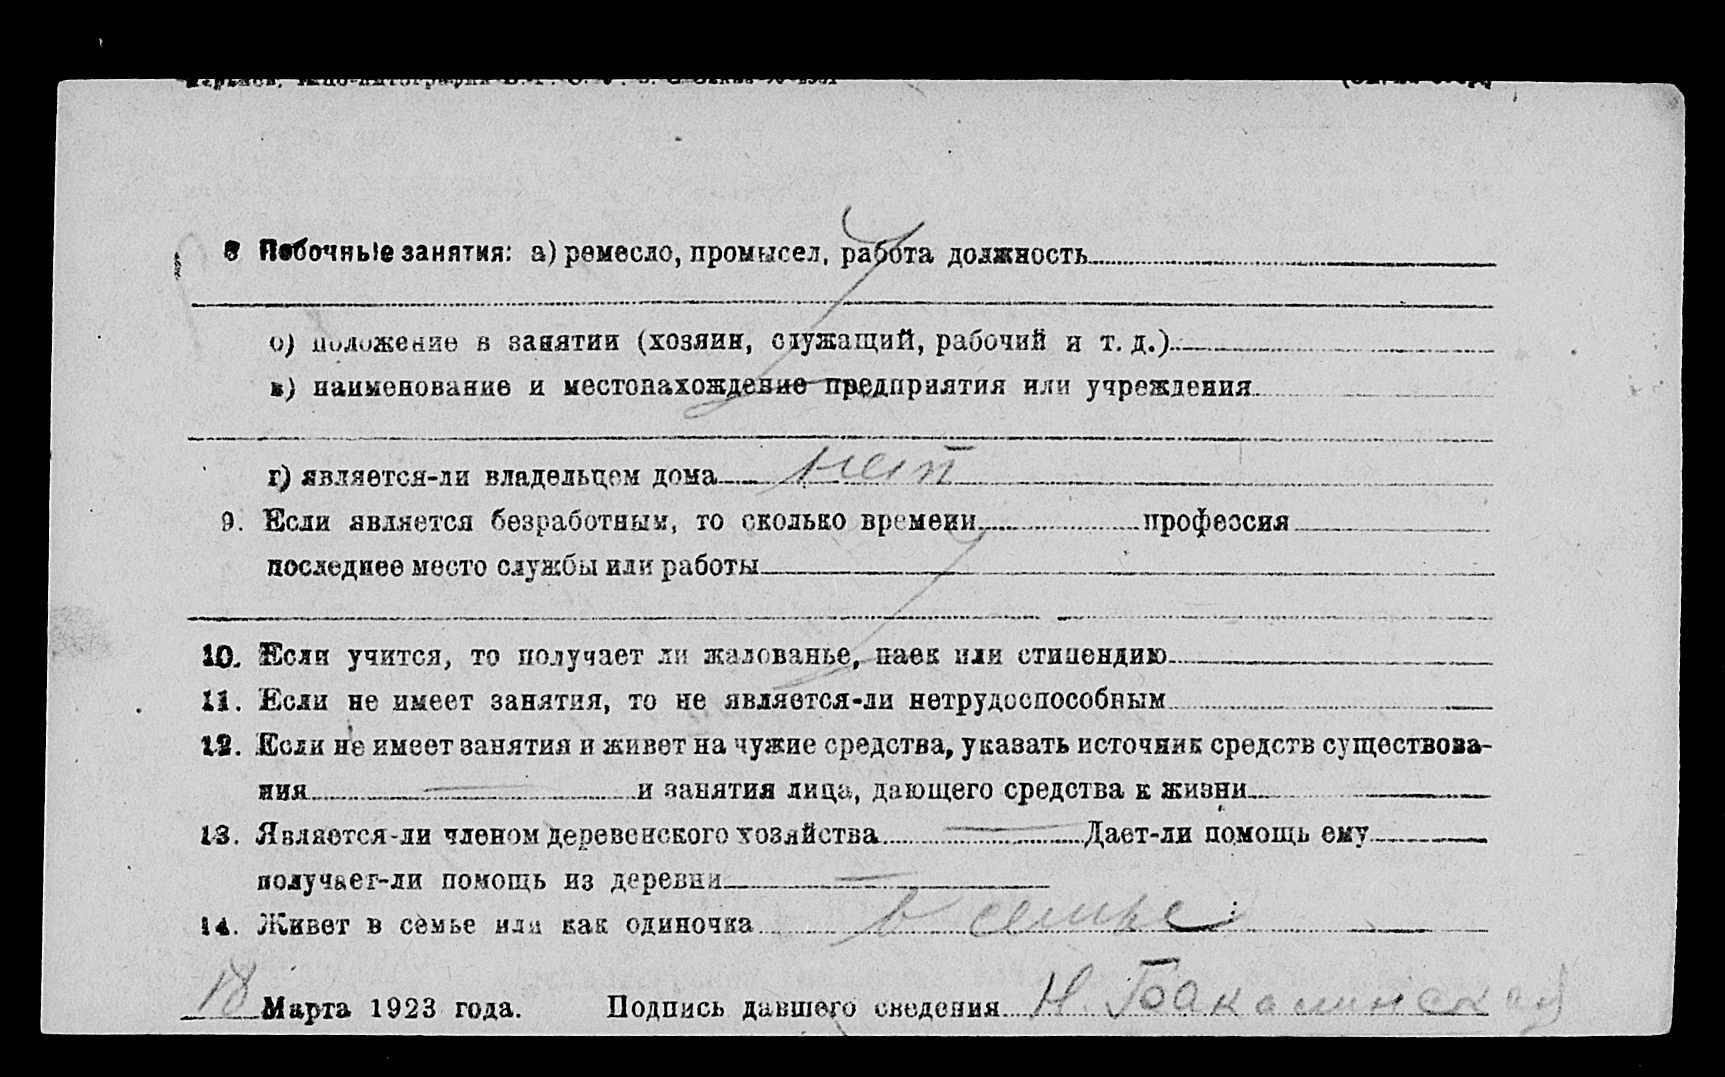 8 Побочные занятия: а) ремесло, промысел, работа должность
б) положение в занятии (хозяин, служащий, рабочий и т. д.)
в) наименование и местонахождение предприятия или учреждения
г) является-ли владельцем дома нет
9. Если является безработным, то сколько времени профессия
последнее место службы или работы
10. Если учится, то получает ли жалованье, паек или стипендию
11. Если не имеет занятия, то не является-ли нетрудоспособным
12. Если не имеет занятия и живет на чужие средства, указать источник средств существова-
ния — и занятия лица, дающего средства к жизни
13. Является-ли членом деревенского хозяйства — Дает-ли помощь ему
получает-ли помощь из деревни —
14. Живет в семье или как одиночка в семье
18 Марта 1923 года. Подпись давшего сведения Н. Бакалинский